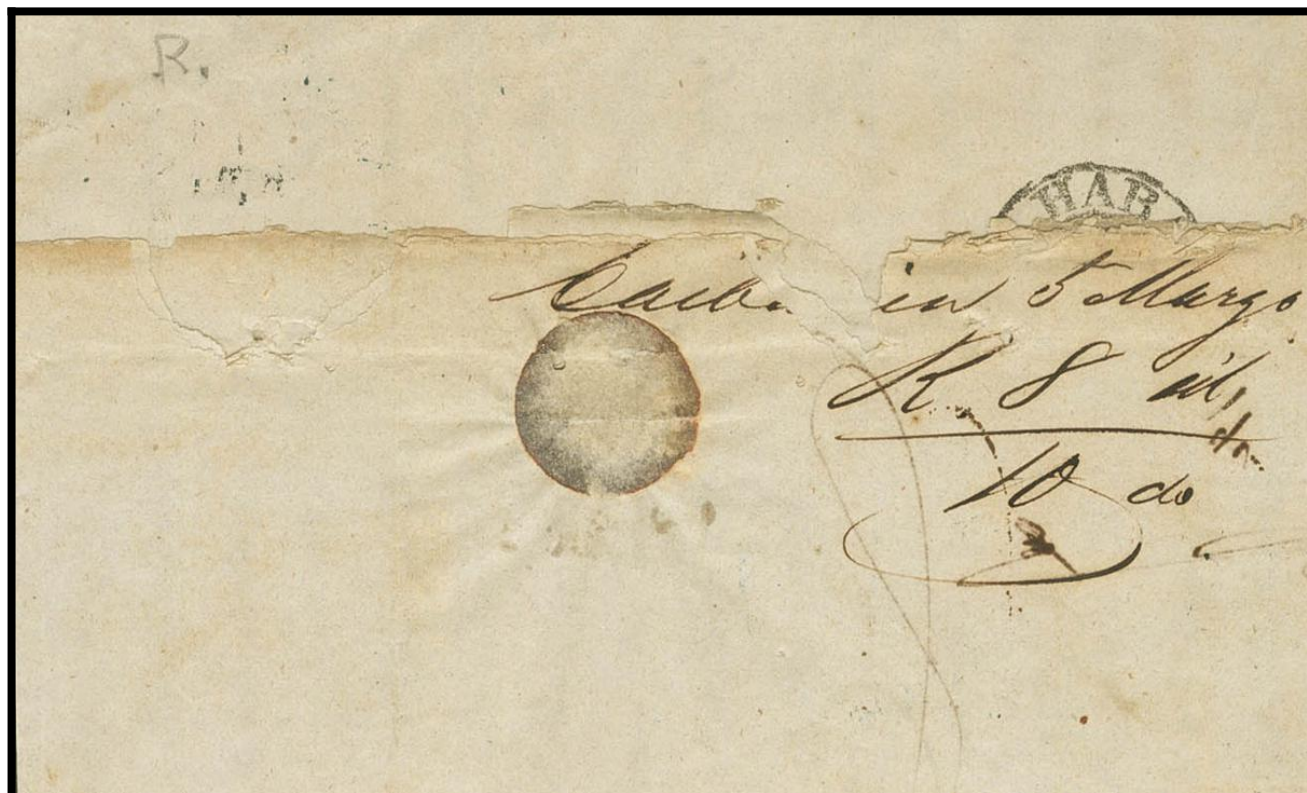 R.
HAB
en 5 Marzo
R 8 id,
10 do